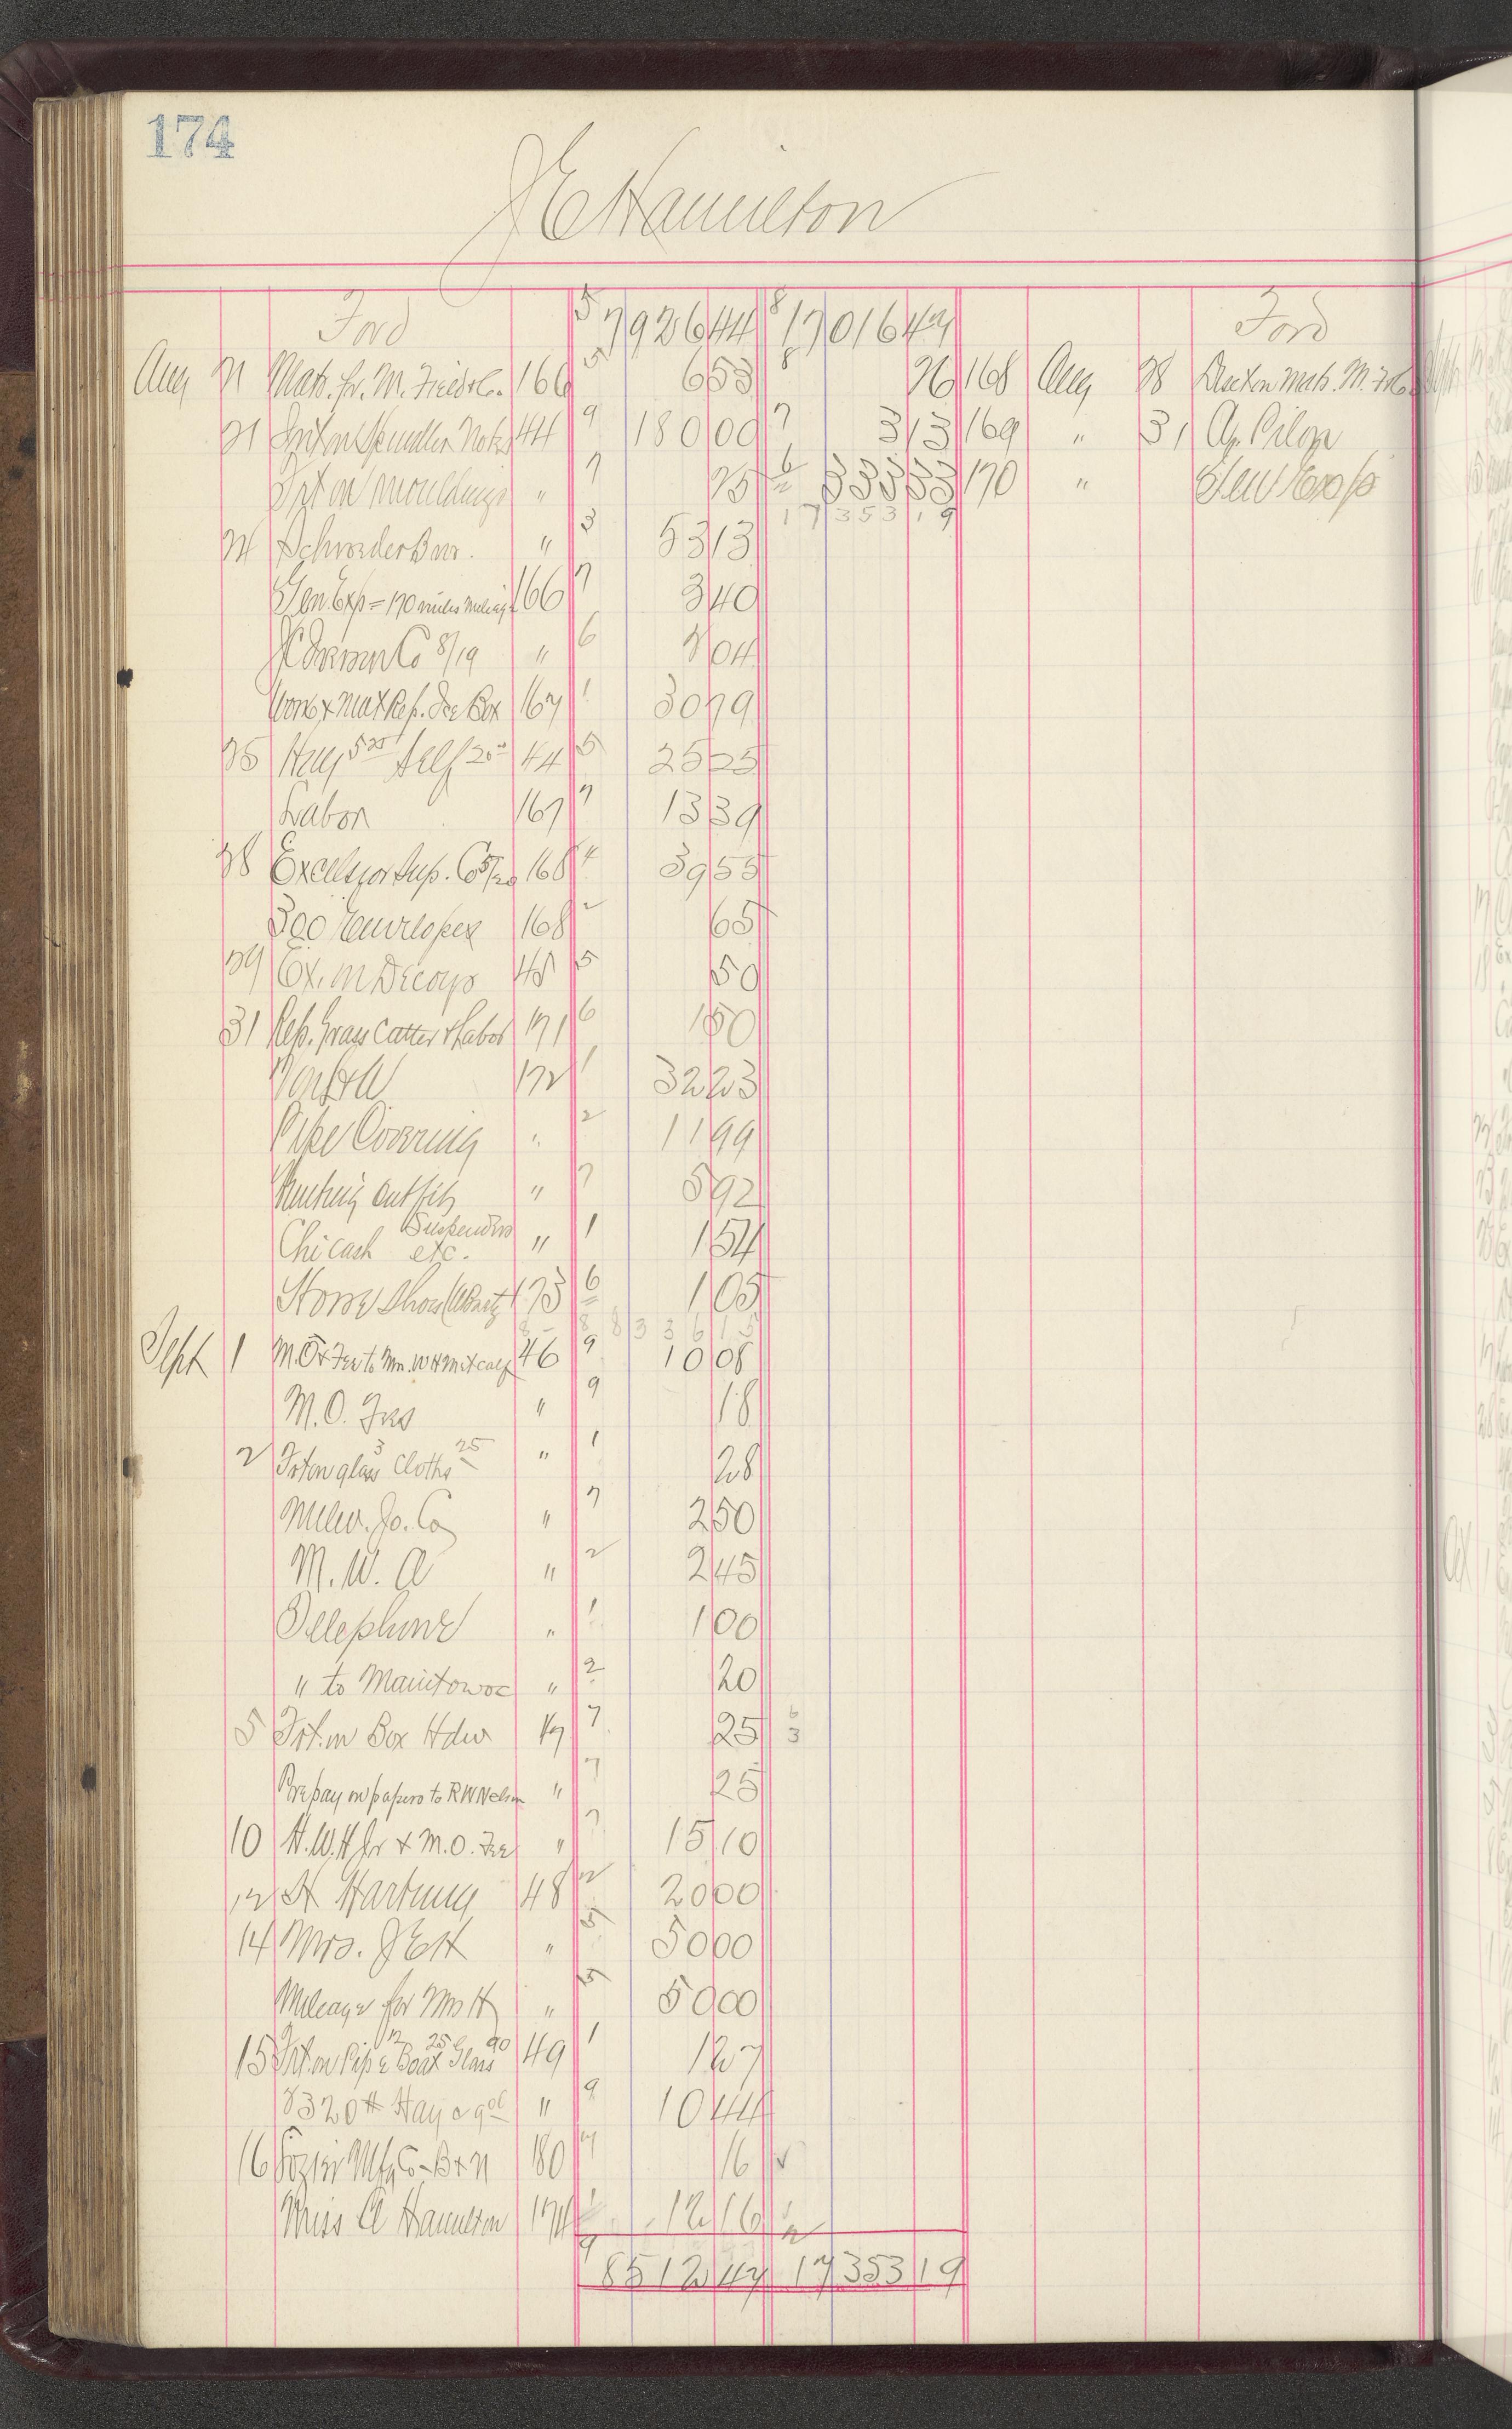 174
J E Hamilton
Ford 5 7926 44 8 17016 47 Ford
Aug 21 Math. for M. Friedl. 166 5 6 53 8 26 168 Aug 28 M.
21 Frt on Spindler Notes 44 9 180 00 7 3 13 169 " 31 Pilon
Frt on Mouldings " 7 25 6 333 33 170 " Gen Exp
17353 19
24 Schroeder Bros. " 3 53 13
Gen. Exp = 170 miles mileage 166 7 3 40
Co 8/19 " 6 2 04
Work & Mat Rep. Ice Box 167 1 30 79
25 Hay 5 25 Self 20 00 44 5 25 25
Labor 167 7 13 39
28 Excelsior Sup. Co 168 4 39 55
300 Envelopes 168 2 65
29 Ex. on Decoys 45 5 50
31 Rep. Grass Cutter & Labor 171 6 1 50
172 1 32 23
Pipe Covering " 2 11 99
Outfit " 7 5 92
Chi cash Suspenders etc. " 1 1 54
Horse Shoes 173 6 1 05
8 8336 15
Sept 1 M.O. & Fee to Mrs. W H Metcalf 46 9 10 08
M.O. Fees " 9 18
2 Frt on glass 3 Cloths 25 " 1 28
Milw. Jo. Co " 7 2 50
M. W. A " 2 2 45
Telephone " 1 1 00
" to Manitowoc " 2 20
5 Frt. on Box Hdw 47 7 25 6 3
Prepay on papers to R W Nelson " 7 25
10 H.W.H Jr & M.O. Fee " 7 15 10
12 H Hartung 48 2 20 00
14 Mrs. J E H " 5 50 00
Mileage for Mrs H " 5 50 00
15 Frt. on Pipe 12 Boat 25 Glass 90 49 1 1 27
2320# Hay @ 9 00 " 9 10 44
16 Mfg Co - B & N 180 7 16
Miss A Hamilton 174 12 16
9 8512 47 17353 19